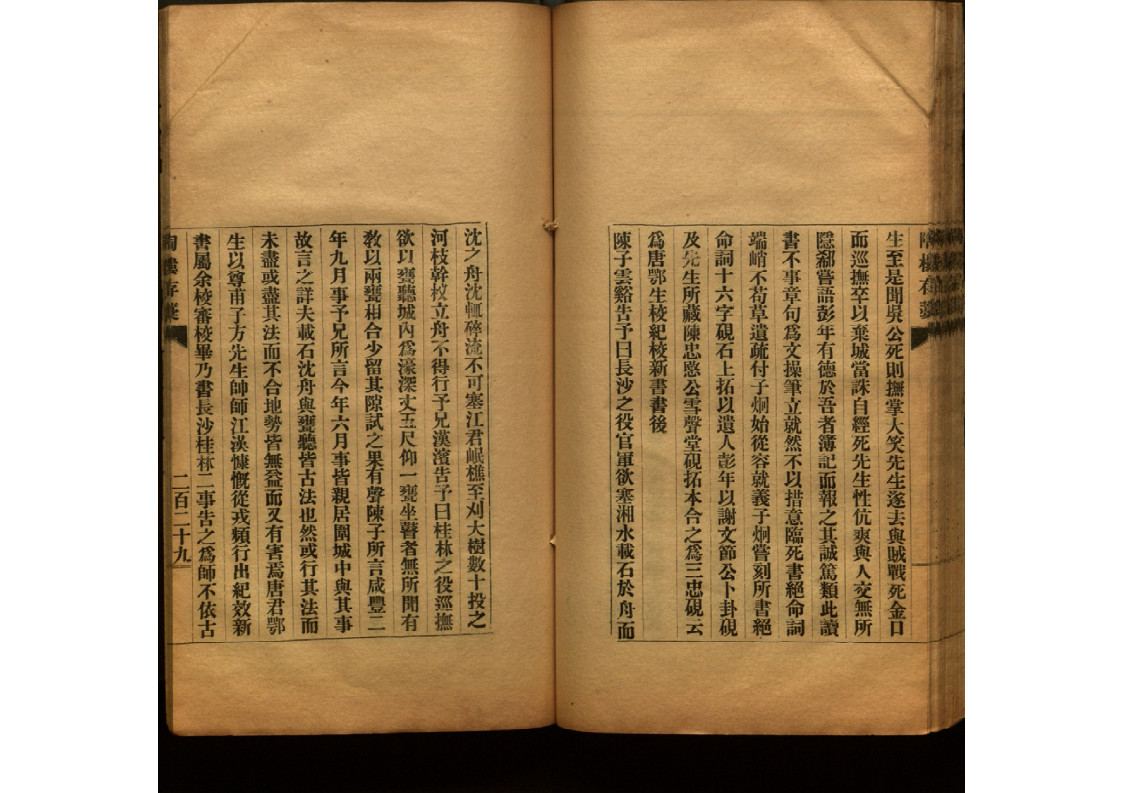 生至是聞吳公死則撫掌大笑先生遂去與賊戰死金口
而巡撫卒以棄城當誅自經死先生性伉爽與人交無所
隱鄰嘗語彭年有德於吾者簿記而報之其誠篤類此讀
書不事章句爲文操筆立就然不以措意臨死書絕命詞
端峭不苟草遺疏付子炯始從容就義子炯嘗刻所書絕
命詞十六字硯石上拓以遺人彭年以謝文節公卜卦硯
及先生所藏陳忠愍公雪聲堂硯拓本合之爲三忠硯云
爲唐鄂生校紀校新書書後
陳子雲谿告予曰長沙之役官軍欲塞湘水載石於舟而
沈之舟沈輒碎流不可塞江君岷樵至刈大樹數十投之
河枝幹杈立舟不得行予兄漢濱告予曰桂林之役巡撫
欲以甕聽城內爲濠深丈五尺仰一甕坐瞽者無所聞有
敎以兩甕相合少留其隙試之果有聲陳子所言咸豐二
年九月事予兄所言今年六月事皆親居圍城中與其事
故言之詳夫載石沈舟與甕聽皆古法也然或行其法而
未盡或盡其法而不合地勢皆無益而又有害焉唐君鄂
生以尊甫子方先生師師江漢慷慨從戎頻行出紀效新
書屬余校審校畢乃書長沙桂林二事告之爲師不依古
陶樓存稾
二百二十九